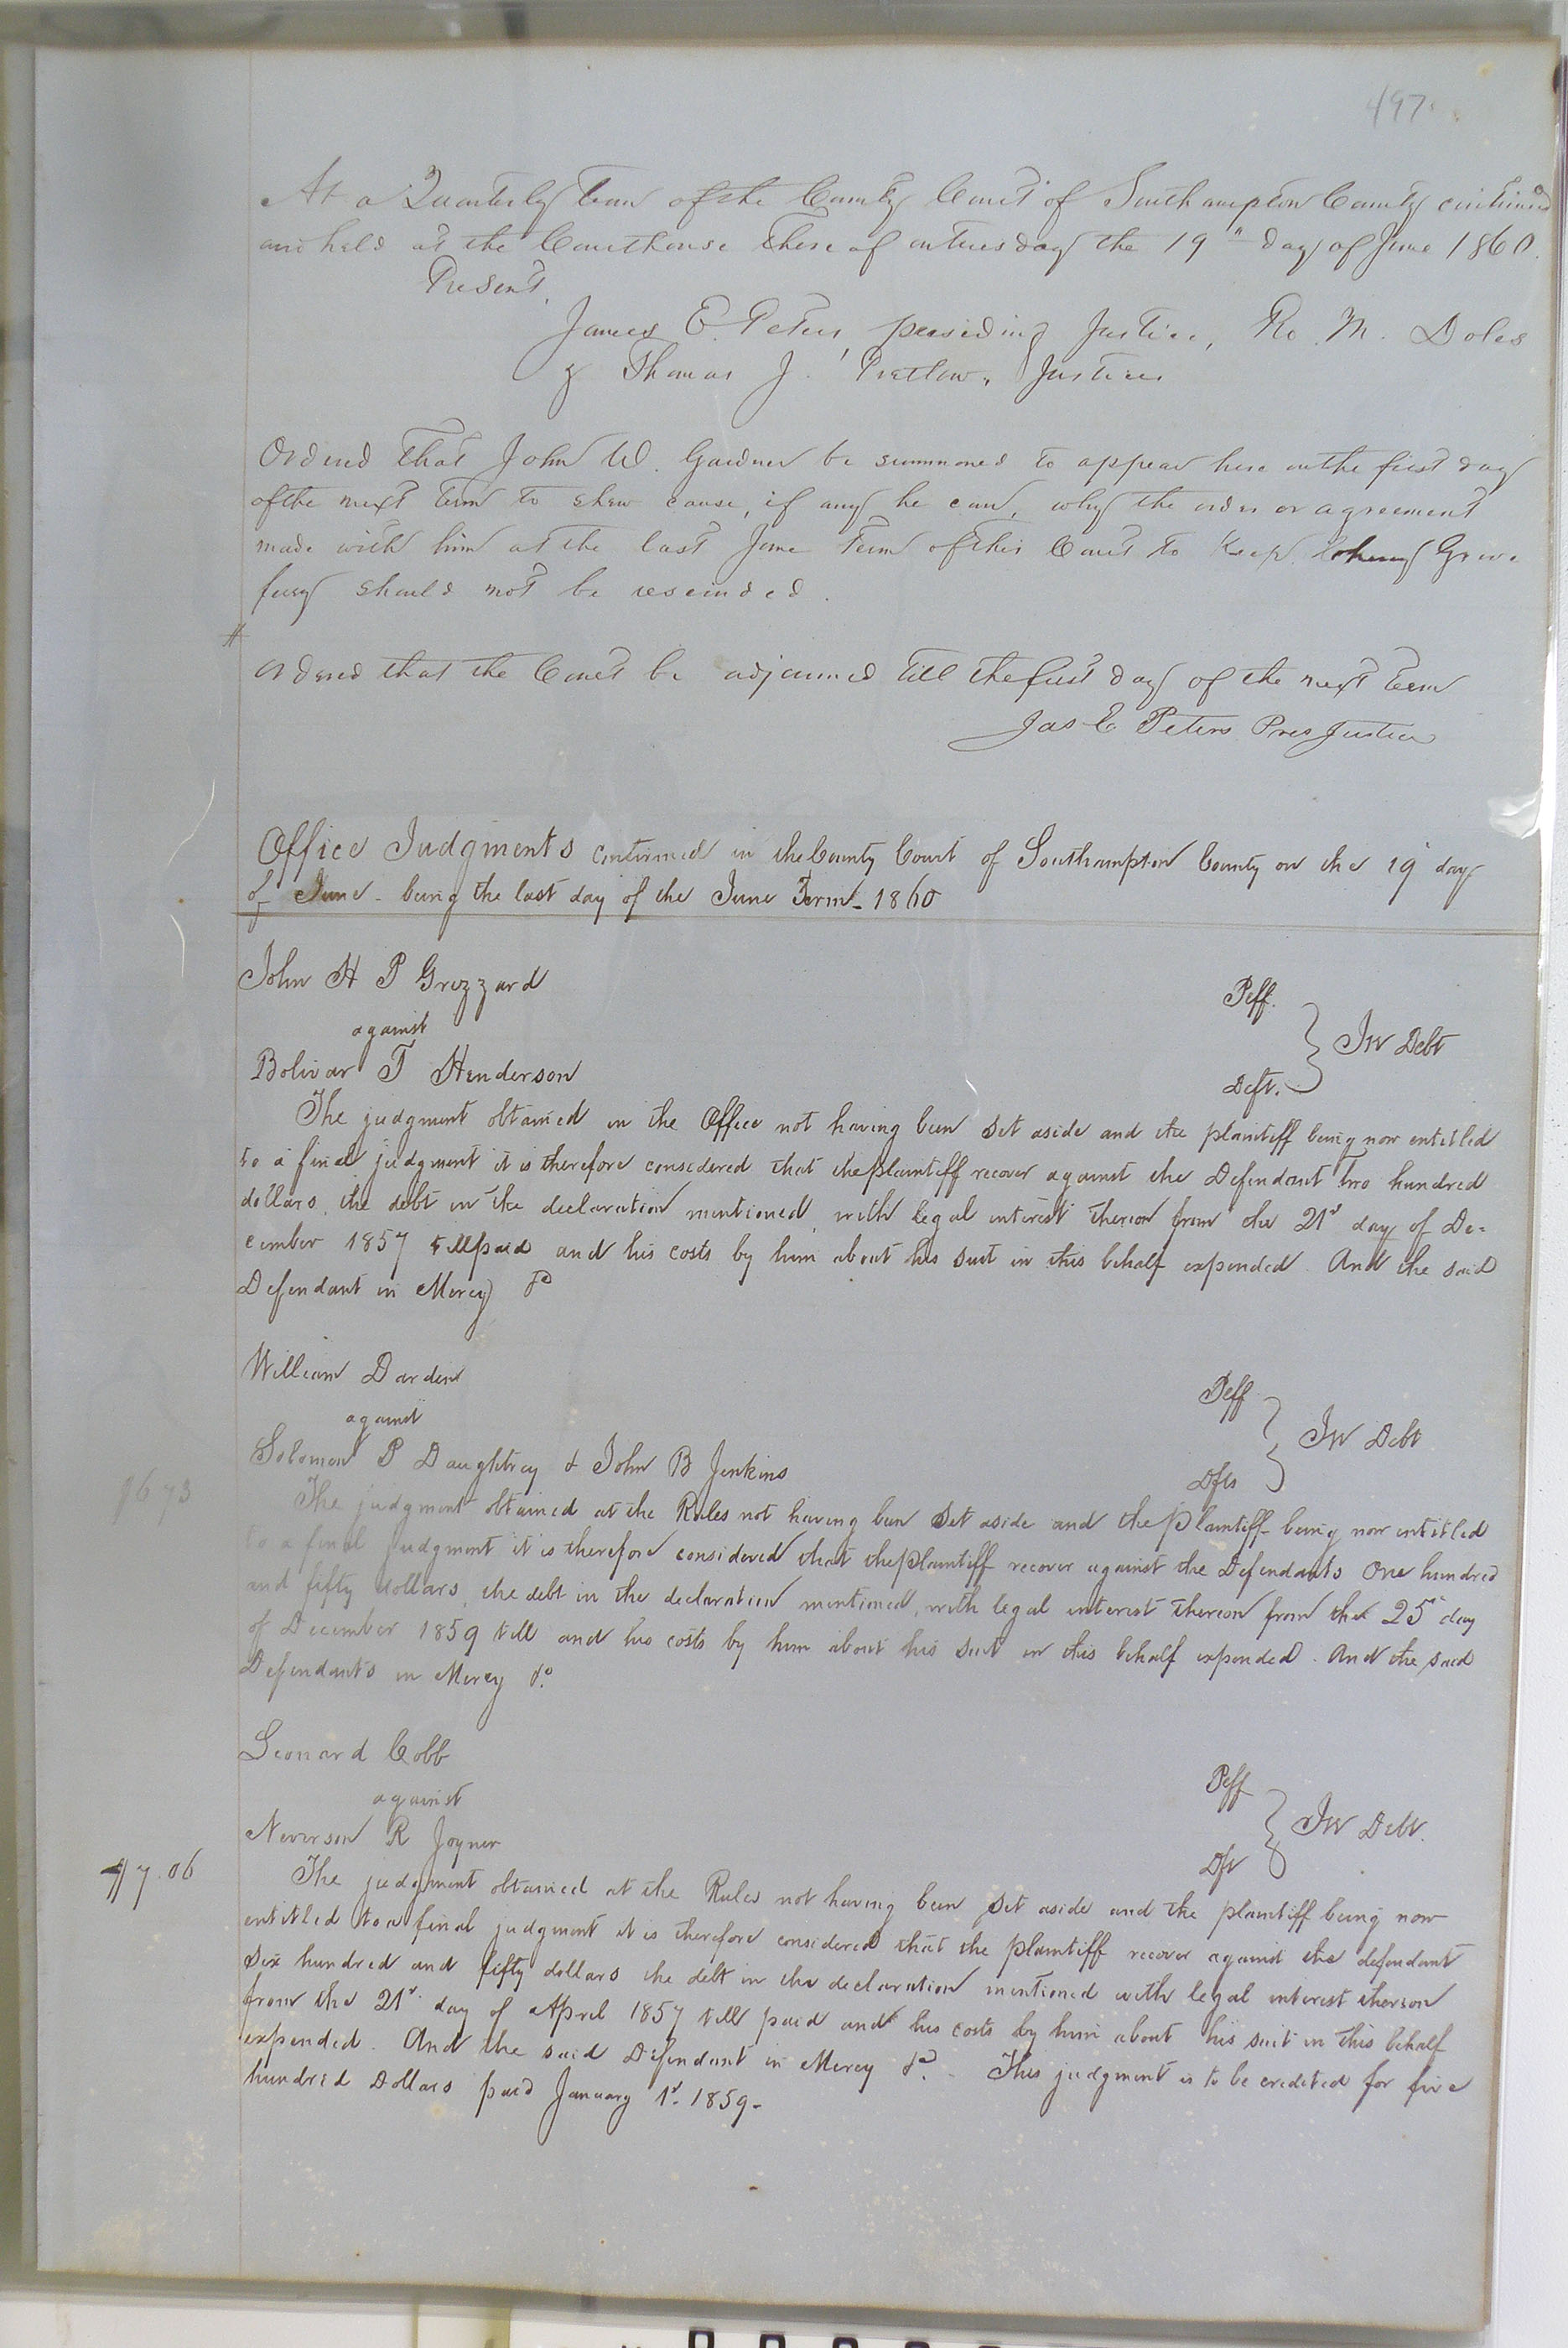 497
At a Quarterly Term of the County Court of Southampton County continued
and held at the Courthouse thereof on tuesday the 19th day of June 1860.
Present,
James E. Peters, presiding Justice, Ro. M. Doles
& Thomas J. Pretlow, Justices
Ordered that John W. Gardner be summoned to appear here on the first day
of the next term to shew cause, if any he can, why the order or agreement
made with him at the last June Term of this Court to keep Grove
ferry should not be rescinded.
#
Ordered that the Court be adjourned till the first day of the next term
Jas E Peters Pres Justice
Office Judgments confirmed in the County Court of Southampton County on the 19th day
of June - being the last day of the June Term - 1860
John H P Grizzard Plff.
against } In Debt
Bolivar T Henderson Deft.
The judgment obtained in the Office not having been set aside and the plaintiff being now entitled
to a final judgment it is therefore considered that the plaintiff recover against the Defendant two hundred
dollars, the debt in the declaration mentioned, with legal interest thereon from the 21st day of De-
cember 1857 till paid and his costs by him about his suit in this behalf expended. And the said
Defendant in Mercy &c
William Darden Plff
against } In Debt
Solomon P Daughtrey & John B Jenkins Dfts
$6 73
The judgment obtained at the Rules not having been set aside and the plaintiff being now entitled
to a final judgment it is therefore considered that the plaintiff recover against the Defendants One hundred
and fifty dollars, the debt in the declaration mentioned, with legal interest thereon from the 25th day
of December 1859 till and his costs by him about his suit in this behalf expended. And the said
Defendants in Mercy &c.
Leonard Cobb Plff
against } In Debt.
Neverson R Joyner Dft
$7.06
The judgment obtained at the Rules not having been set aside and the plaintiff being now
entitled to a final judgment it is therefore considered that the plaintiff recover against the defendant
Six hundred and fifty dollars the debt in the declaration mentioned with legal interest thereon
from the 21st day of April 1857 till paid and his costs by him about his suit in this behalf
expended. And the said Defendant in Mercy &c. - This judgment is to be credited for five
hundred Dollars paid January 1st 1859-